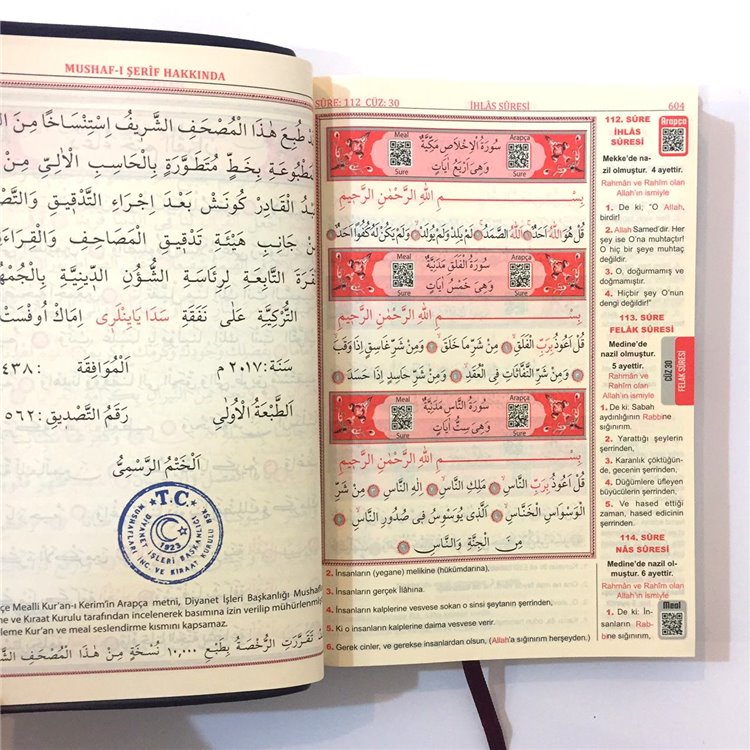 MUSHAF-I ŞERÎF HAKKINDA
طُبِعَ هٰذَا الْمُصْحَفُ الشَّرٖيفُ اِسْتِنْسَاخًا مِنَ
مَطْبُوعَةِ بِخَطٍّ مُتَطَوِّرَةٍ بِالْحَاسِبِ الْاٰلِيِّ مِنْ
الْقَادِرِ كُونَشْ بَعْدَ اِجْرَاءِ التَّدْقٖيقِ وَالتَّصْ
جَانِبِ هَيْئَةِ تَدْقٖيقِ الْمَصَاحِفِ وَالْقِرَاءَ
التَّابِعَةِ لِرِئَاسَةِ الشُّؤُنِ الدّٖينِيَّةِ بِالْجُمْهُ
التُّرْكِيَّةِ عَلٰى نَفَقَةِ سَدَا يَايِنْلَرٖى اِمَاكْ اُوفْسَتْ
سَنَة: ٢٠١٧ م اَلْمُوَافَقَة : ٤٣٨
اَلطَّبْعَةُ الْاُولٰى رَقْمُ التَّصْدٖيقِ: ٥٦٢
اَلْخَتْمُ الرَّسْمِىُّ
T.C.
DİYANET İŞLERİ BAŞKANLIĞI
MUSHAFLARI İNC. VE KIRAAT KURULU
1923
çe Mealli Kur'an-ı Kerim'in Arapça metni, Diyanet İşleri Başkanlığı Mushafl
ne ve Kıraat Kurulu tarafından incelenerek basımına izin verilip mühürlenmi
leme Kur'an ve meal seslendirme kısmını kapsamaz.
تَقَرَّرَتِ الرُّخْصَةُ بِطَبْعِ ١٠,٠٠٠ نُسْخَةٍ مِنْ هٰذَا الْمُصْحَفِ
SÛRE: 112 CÜZ: 30 İHLÂS SÛRESİ 604
Meal
Sure
سُورَةُ الْاِخْلَاصِ مَكِّيَّةٌ
وَهِىَ اَرْبَعُ اٰيَاتٍ
Arapça
Sure
بِسْمِ اللّٰهِ الرَّحْمٰنِ الرَّحٖيمِ
قُلْ هُوَ اللّٰهُ اَحَدٌ اَللّٰهُ الصَّمَدُ لَمْ يَلِدْ وَلَمْ يُولَدْ وَلَمْ يَكُنْ لَهُ كُفُوًا اَحَدٌ
Meal
Sure
سُورَةُ الْفَلَقِ مَدَنِيَّةٌ
وَهِىَ خَمْسُ اٰيَاتٍ
Arapça
Sure
بِسْمِ اللّٰهِ الرَّحْمٰنِ الرَّحٖيمِ
قُلْ اَعُوذُ بِرَبِّ الْفَلَقِ مِنْ شَرِّ مَا خَلَقَ وَمِنْ شَرِّ غَاسِقٍ اِذَا وَقَبَ
وَمِنْ شَرِّ النَّفَّاثَاتِ فِى الْعُقَدِ وَمِنْ شَرِّ حَاسِدٍ اِذَا حَسَدَ
Meal
Sure
سُورَةُ النَّاسِ مَدَنِيَّةٌ
وَهِىَ سِتُّ اٰيَاتٍ
Arapça
Sure
بِسْمِ اللّٰهِ الرَّحْمٰنِ الرَّحٖيمِ
قُلْ اَعُوذُ بِرَبِّ النَّاسِ مَلِكِ النَّاسِ اِلٰهِ النَّاسِ مِنْ شَرِّ
الْوَسْوَاسِ الْخَنَّاسِ اَلَّذٖى يُوَسْوِسُ فٖى صُدُورِ النَّاسِ
مِنَ الْجِنَّةِ وَالنَّاسِ
2. İnsanların (yegane) melikine (hükümdarına),
3. İnsanların gerçek İlâhına.
4. İnsanların kalplerine vesvese sokan o sinsi şeytanın şerrinden,
5. Ki o insanların kalplerine daima vesvese verir.
6. Gerek cinler, ve gerekse insanlardan olsun, (Allah'a sığınırım herşeyden.)
Arapça
112. SÛRE
İHLÂS
SÛRESİ
Mekke'de na-
zil olmuştur. 4 ayettir.
Rahmân ve Rahîm olan
Allah'ın ismiyle
1. De ki: "O Allah,
birdir!
2. Allah Samed'dir. Her
şey ise O'na muhtaçtır!
O hiç bir şeye muhtaç
değildir.
3. O, doğurmamış ve
doğmamıştır.
4. Hiçbir şey O'nun
dengi değildir!"
113. SÛRE
FELÂK SÛRESİ
Medine'de
nazil olmuştur.
5 ayettir.
Rahmân ve
Rahîm olan
Allah'ın ismiyle
CÜZ 30
FELAK SÛRESİ
1. De ki: Sabah
aydınlığının Rabbine
sığınırım.
2. Yarattığı şeylerin
şerrinden,
3. Karanlık çöktüğün-
de, gecenin şerrinden,
4. Düğümlere üfleyen
büyücülerin şerrinden,
5. Ve hased ettiği
zaman, hased edicinin
şerrinden.
114. SÛRE
NÂS SÛRESİ
Medine'de nazil ol-
muştur. 6 ayettir.
Rahmân ve Rahîm olan
Allah'ın ismiyle
1. De ki: İn-
sanların Rab-
bine sığınırım,
Meal